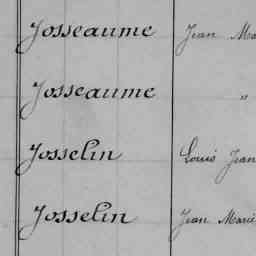 Josseaume Jean Ma
Josseaume "
Josselin Louis Jean
Josselin Jean Marie